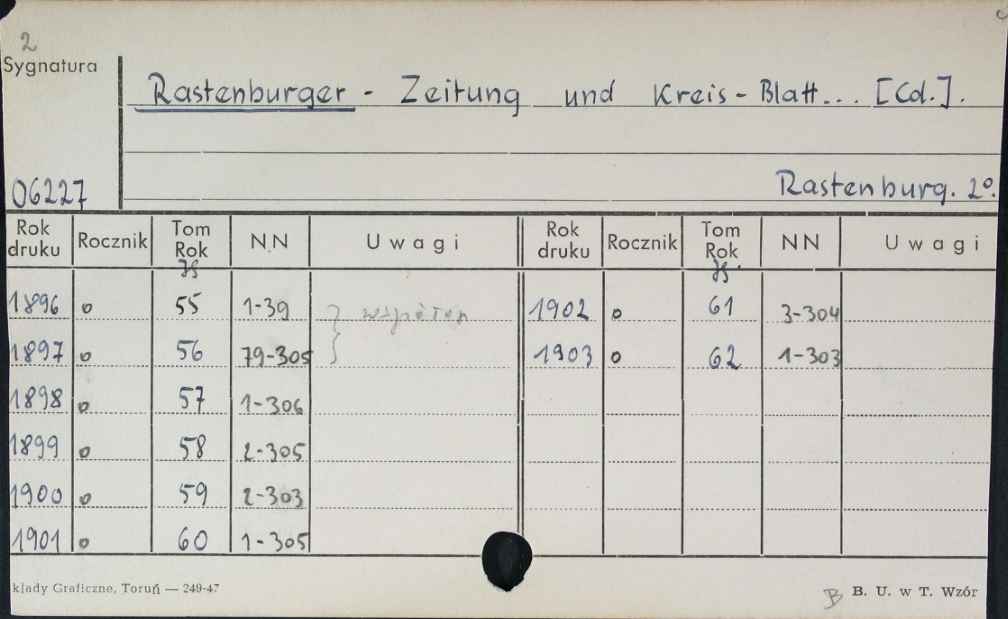 2
Sygnatura
Rastenburger - Zeitung und Kreis-Blatt... [Cd.].
06227
Rastenburg. 2º.
Rok druku Rocznik Tom Rok NN Uwagi Rok druku Rocznik Tom Rok NN Uwagi
Jg Jg.
1896 o 55 1-39 } współopr 1902 o 61 3-304
1897 o 56 79-305 } 1903 o 62 1-303
1898 o 57 1-306
1899 o 58 2-305
1900 o 59 2-303
1901 o 60 1-305
kłady Graficzne, Toruń — 249-47
B B. U. w T. Wzór